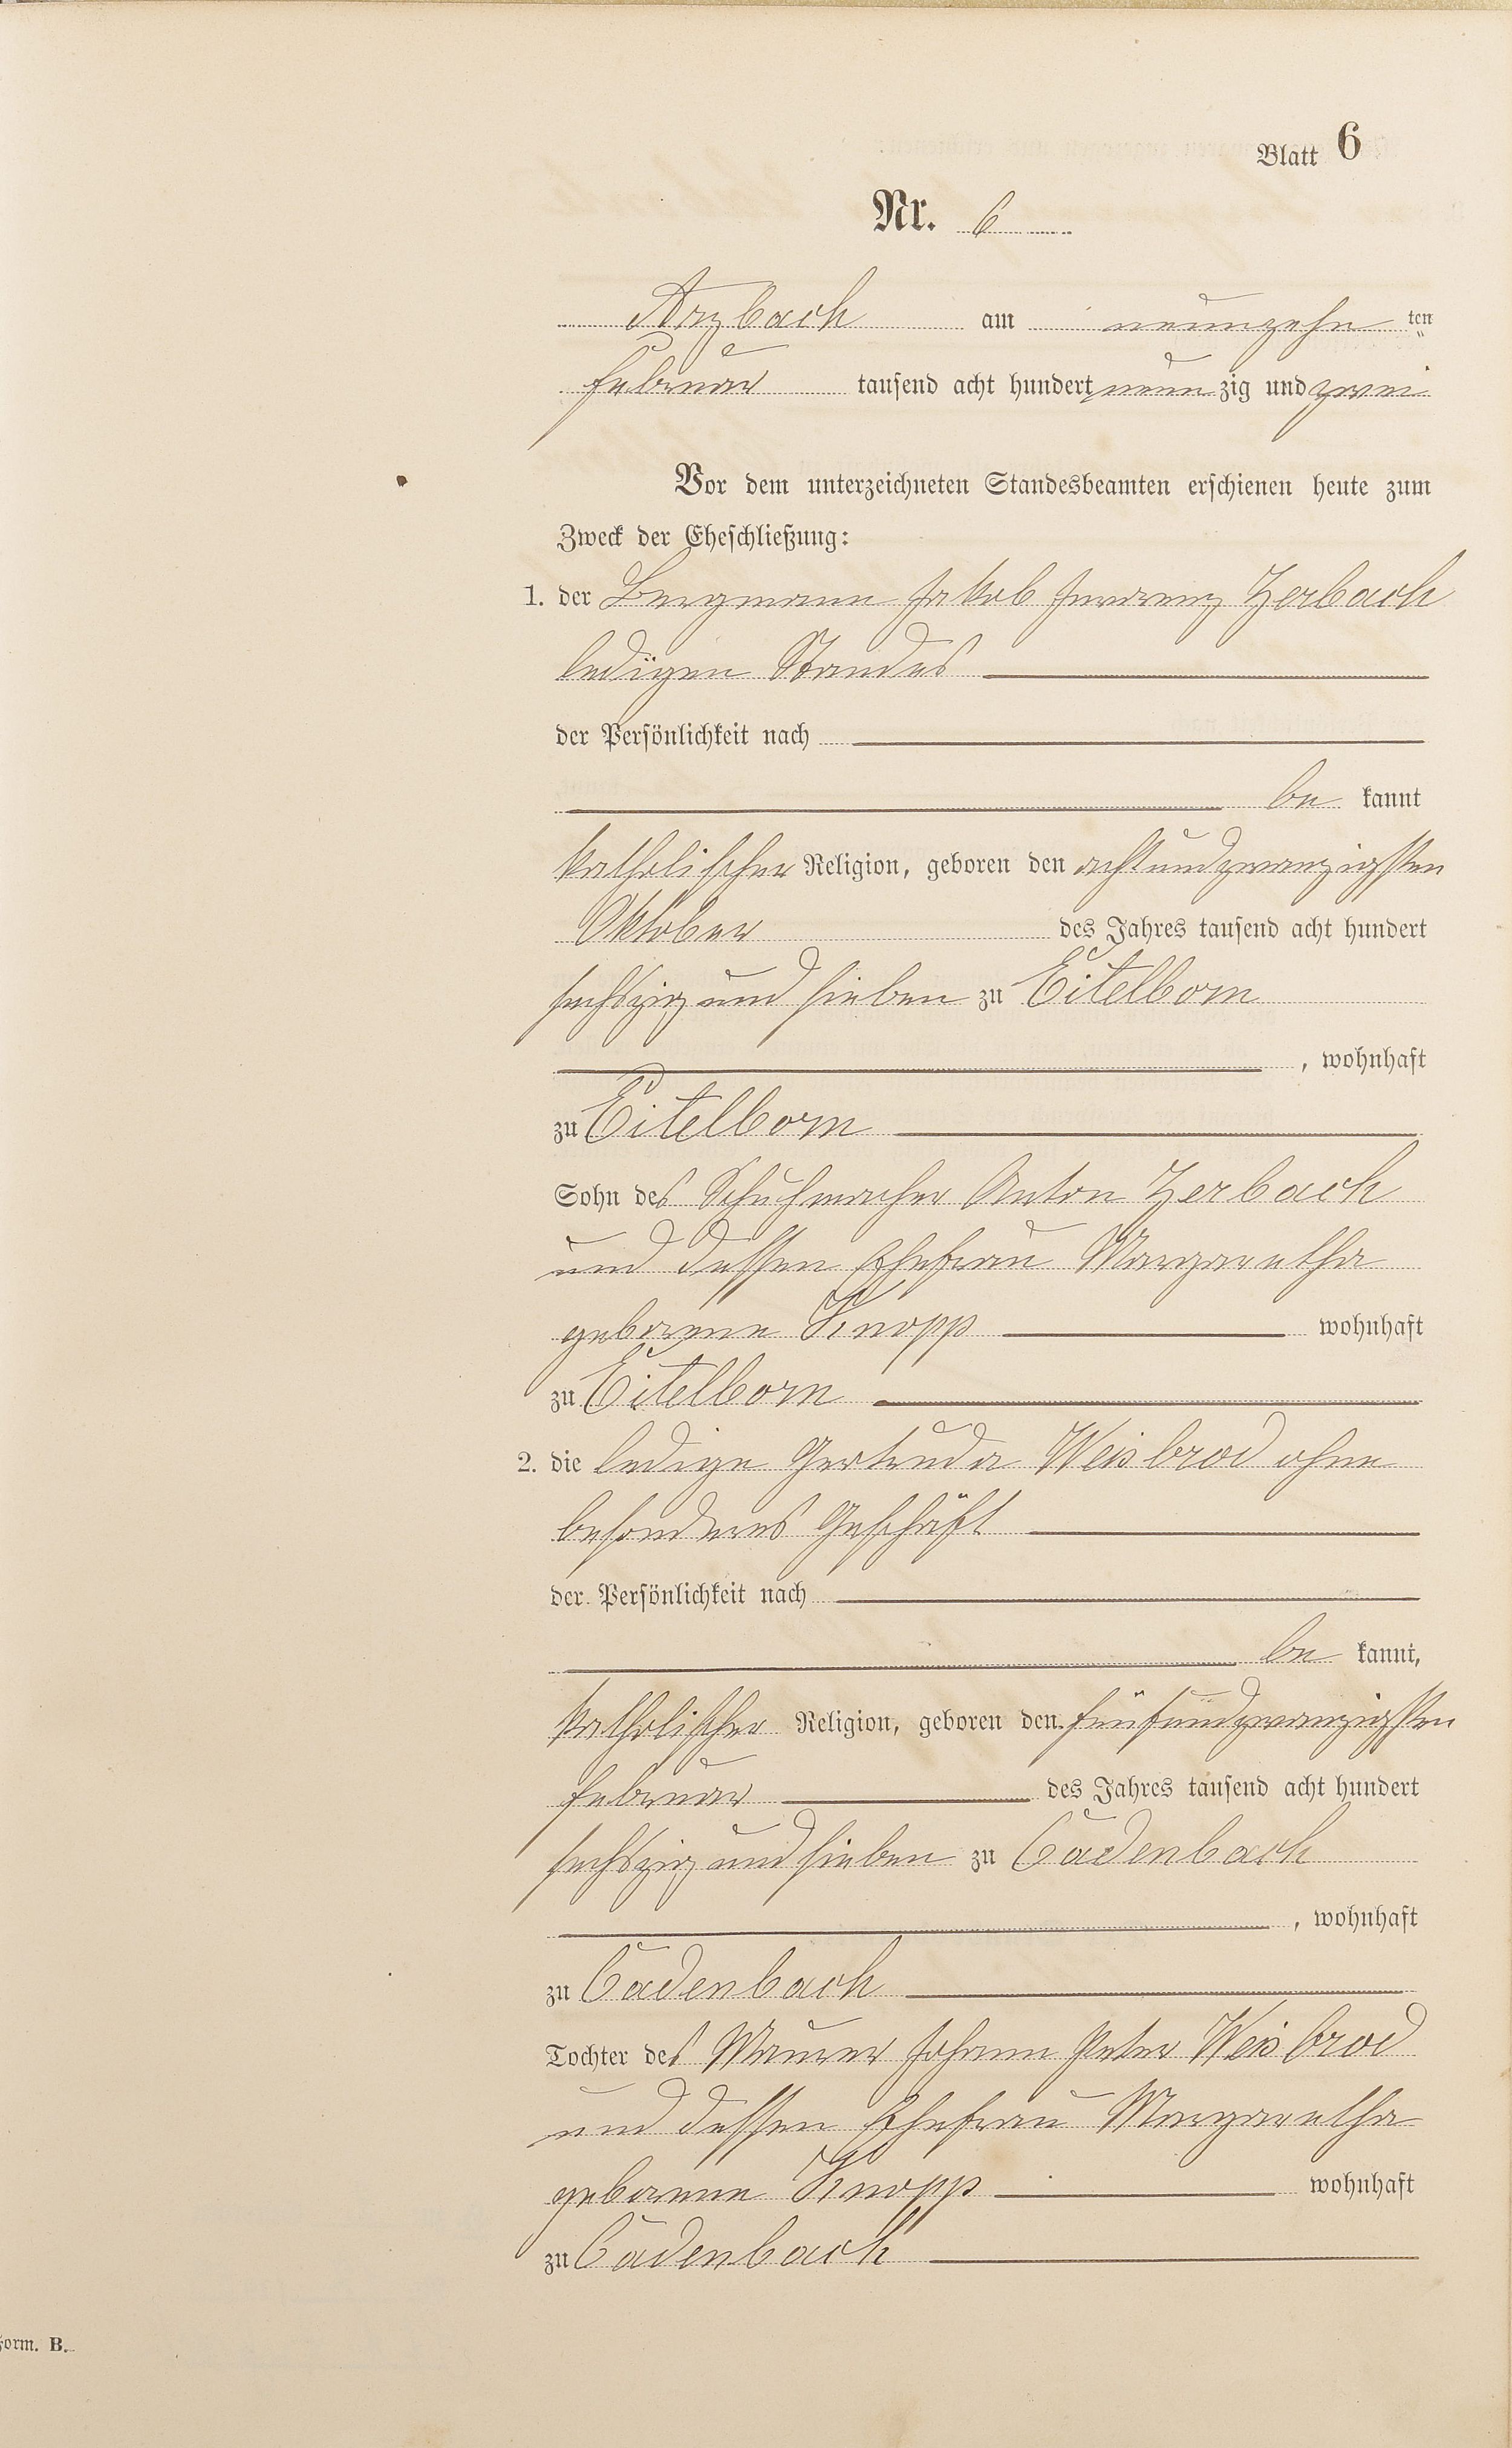 Blatt 6
Nr. 6
Arzbach am neunzehn ten
Februar tausend acht hundert neun zig und zwei
Vor dem unterzeichneten Standesbeamten erschienen heute zum
Zweck der Eheschließung:
1. der Bergmann Jakob Zerbach
ledigen Standes
der Persönlichkeit nach
be kannt
katholischer Religion, geboren den achtundzwanzigsten
Oktober des Jahres tausend acht hundert
sechszig und sieben zu Eitelborn
, wohnhaft
zu Eitelborn
Sohn des Schuhmacher Anton Zerbach
und dessen Ehefrau Margaretha
geborene Knopp wohnhaft
zu Eitelborn
2. die ledige Gertruda Weisbrod ohne
besonderes Geschäft
der Persönlichkeit nach
be kannt,
katholischer Religion, geboren den fünfundzwanzigsten
Februar des Jahres tausend acht hundert
sechszig und sieben zu Cadenbach
, wohnhaft
zu Cadenbach
Tochter des Maurer Johann Peter Weisbrod
und dessen Ehefrau Margaretha
geborene Knopp wohnhaft
zu Cadenbach
Form. B.